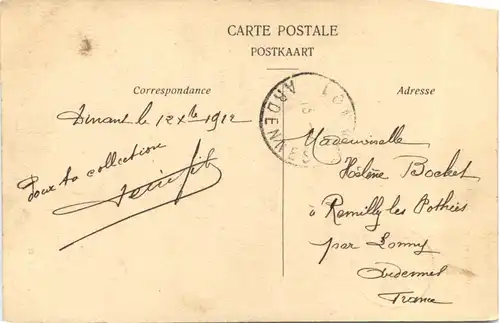 CARTE POSTALE
POSTKAART
Correspondance
Adresse
Dinant le 12 Xbre 1912
Pour ta collection
ARDENNES
Mademoiselle
Hélène Bocket
à Remilly les Pothées
par Lonny
Ardennes
France